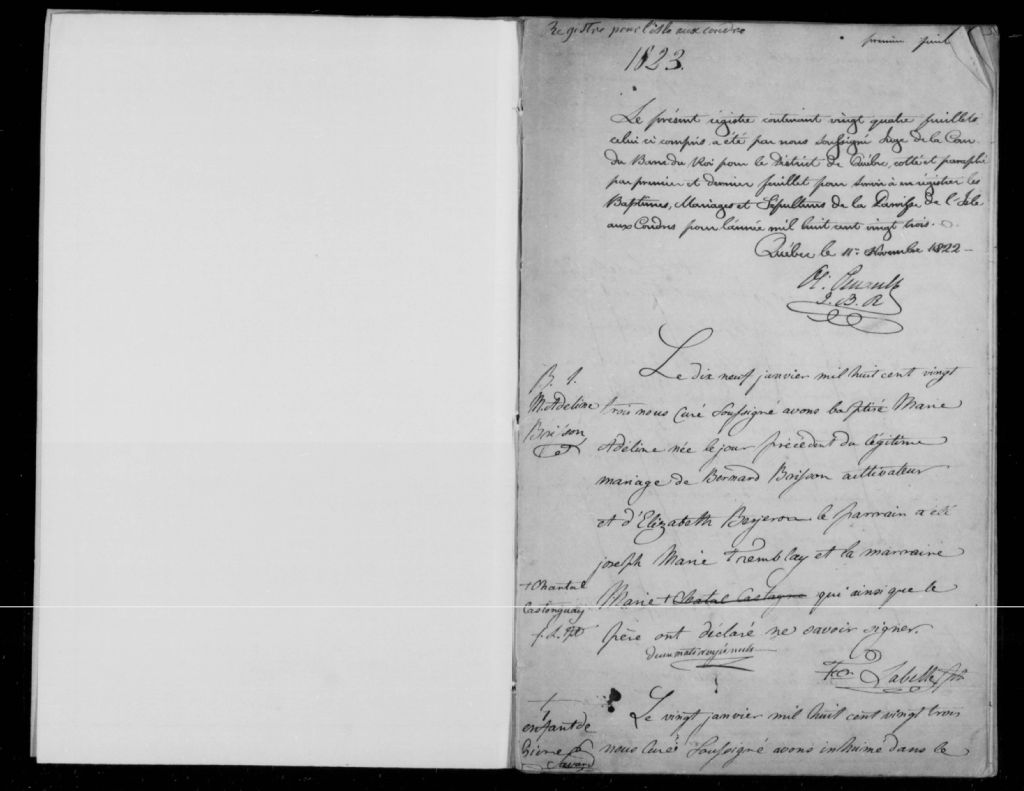 Registre pour l'isle aux coudres
premier feuil
1823.
Le présent régistre contenant vingt quatre feuillets
celui ci compris, a été par nous soussigné Juge de la Cour
du Banc du Roi pour le District de Québec, cotté et paraphé
par premier et dernier feuillet pour servir à enrégistrer les
Baptêmes, Mariages et Sépultures de la Paroisse de l'Isle
aux Coudres pour l'année mil huit cent vingt trois.
Québec le 11e Novembre 1822
Ol. Perrault
J. B. R
B. 1.
M. Adeline
Boisson
Le dix neuf janvier mil huit cent vingt
trois nous Curé soussigné avons baptisé Marie
Adeline née le jour précédent du légitime
mariage de Bernard Boisson cultivateur
et d'Elizabeth Bergeron le parrain a été
joseph Marie Tremblay et la marraine
+ Chantal
Castonguay
f. L. Pt
Marie + Chatal Castagne qui ainsi que le
père ont déclaré ne savoir signer.
deux mots rayés nuls
Fr. Labelle ptr
enfant de
Savard
Le vingt janvier mil huit cent vingt trois
nous Curé soussigné avons inhumé dans le